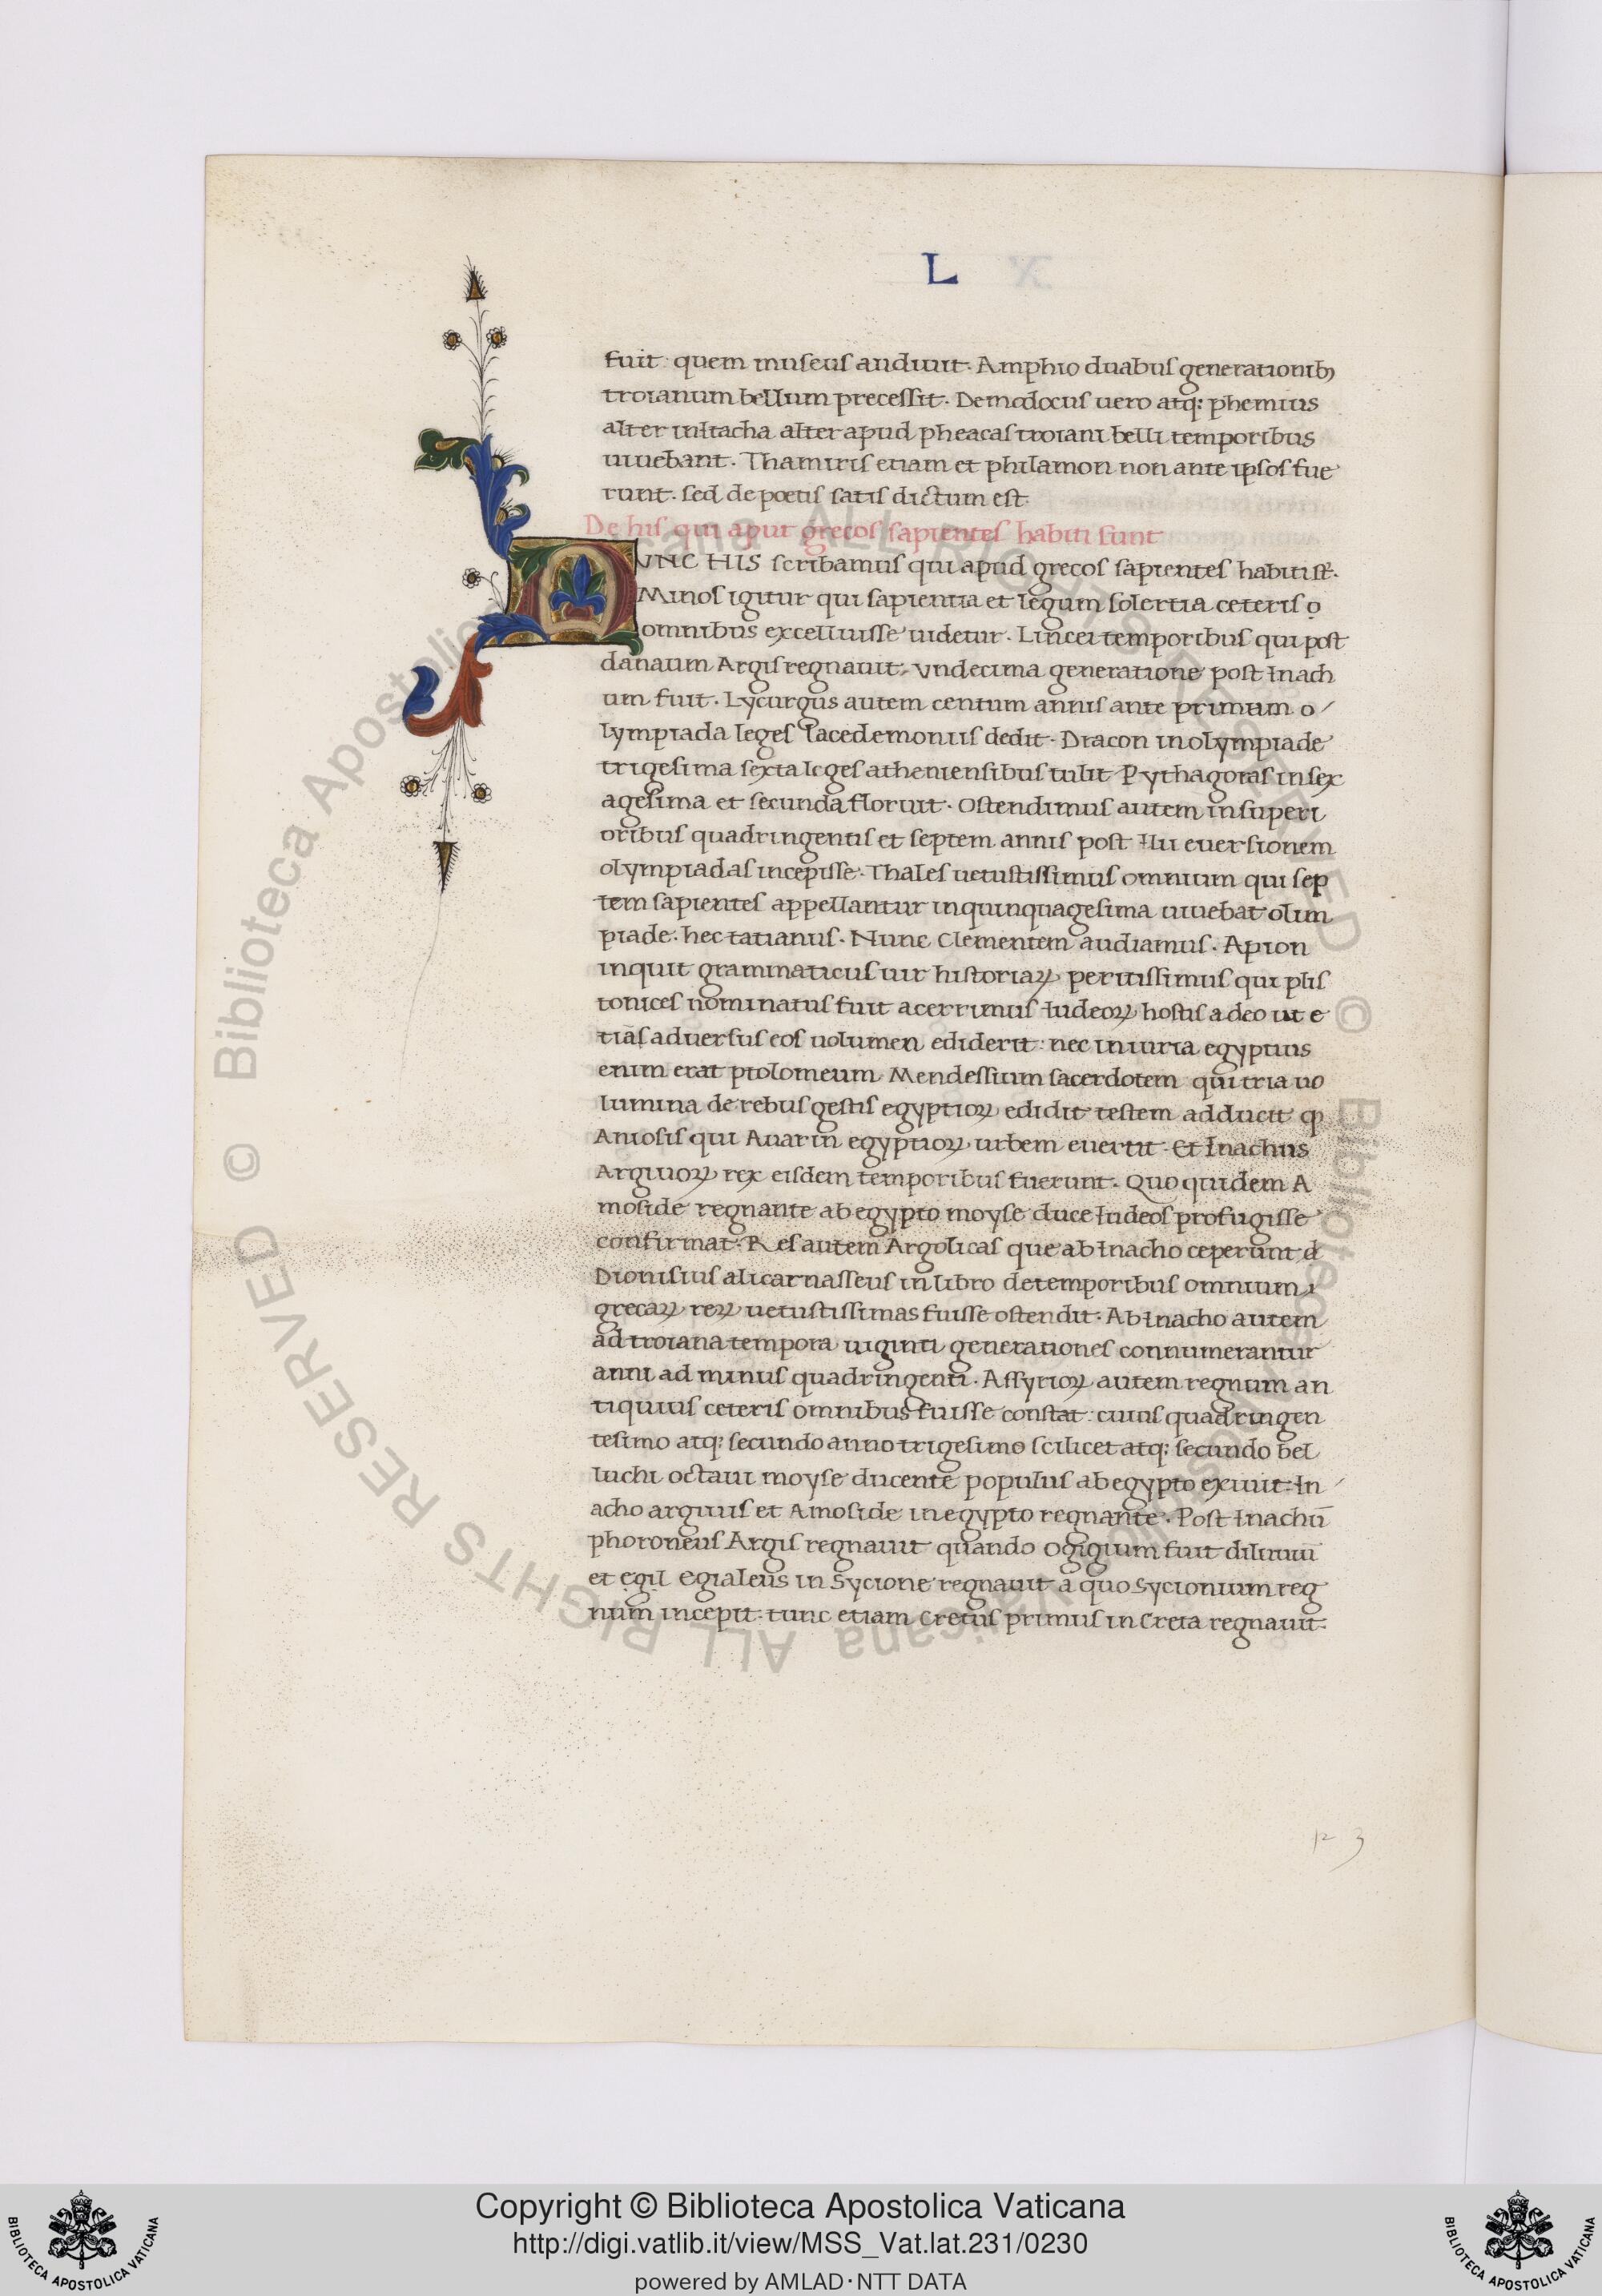 L
fuit: quem museus audiuit. Amphio duabus generationibȝ
troianum bellum precessit. Demodocus uero atq: phemius
alter in Itacha alter apud pheacas troiani belli temporibus
uiuebant. Thamiris etiam et philamon non ante ipsos fue
runt. sed de poetis satis dictum est.
De his qui aput grecos sapientes habiti sunt
NVNC HIS scribamus qui apud grecos sapientes habiti sī.
Minos igitur qui sapientia et legum solertia ceteris o
omnibus excelluisse uidetur. Lincei temporibus qui post
danaum Argis regnauit. vndecima generatione post Inach
um fuit. Lycurgus autem centum annis ante primum o
lympiada leges lacedemoniis dedit. Dracon in olympiade
trigesima sexta leges atheniensibus tulit Pythagoras in sex
agesima et secunda floruit. Ostendimus autem in superi
oribus quadringentis et septem annis post Ilii euersionem
olympiadas incepisse. Thales uetustissimus omnium qui sep
tem sapientes appellantur in quinquagesima uiuebat olim
piade. hec tatianus. Nunc Clementem audiamus. Apion
inquit grammaticus uir historiaꝝ peritissimus qui plis
tonices nominatus fuit acerrimus Iudeoꝝ hostis adeo ut e
tiās aduersus eos uolumen ediderit: nec iniuria egyptius
enim erat ptolomeum Mendessium sacerdotem qui tria uo
lumina de rebus gestis egyptioꝝ edidit testem adducit ꝙ
Amosis qui Auar in egyptioꝝ urbem euertit. Et Inachus
Argiuoꝝ rex eisdem temporibus fuerunt. Quo quidem A
moside regnante ab egypto moyse duce Iudeos profugisse
confirmat. Res autem Argolicas que ab Inacho ceperunt d
Dionisius alicarnasseus in libro de temporibus omnium
grecaꝝ reꝝ uetustissimas fuisse ostendit. Ab Inacho autem
ad troiana tempora uiginti generationes connumerantur
anni ad minus quadringenti. Assyrioꝝ autem regnum an
tiquius ceteris omnibus fuisse constat: cuius quadringen
tesimo atq: secundo anno trigesimo scilicet atq: secundo bel
luchi octaui moyse ducente populus ab egypto exiuit: In
acho argiuis et Amoside in egypto regnante. Post Inachū
phoroneus Argis regnauit quando Ogigium fuit diluuiū
et egil Egialeus in Sycione regnauit a quo Sycionium reg
num incepit: tunc etiam Cretus primus in Creta regnauit.
Copyright © Biblioteca Apostolica Vaticana
http://digi.vatlib.it/view/MSS_Vat.lat.231/0230
powered by AMLAD·NTT DATA
BIBLIOTECA APOSTOLICA VATICANA
BIBLIOTECA APOSTOLICA VATICANA
© Biblioteca Apostolica Vaticana ALL RIGHTS RESERVED © Biblioteca Apostolica Vaticana ALL RIGHTS RESERVED